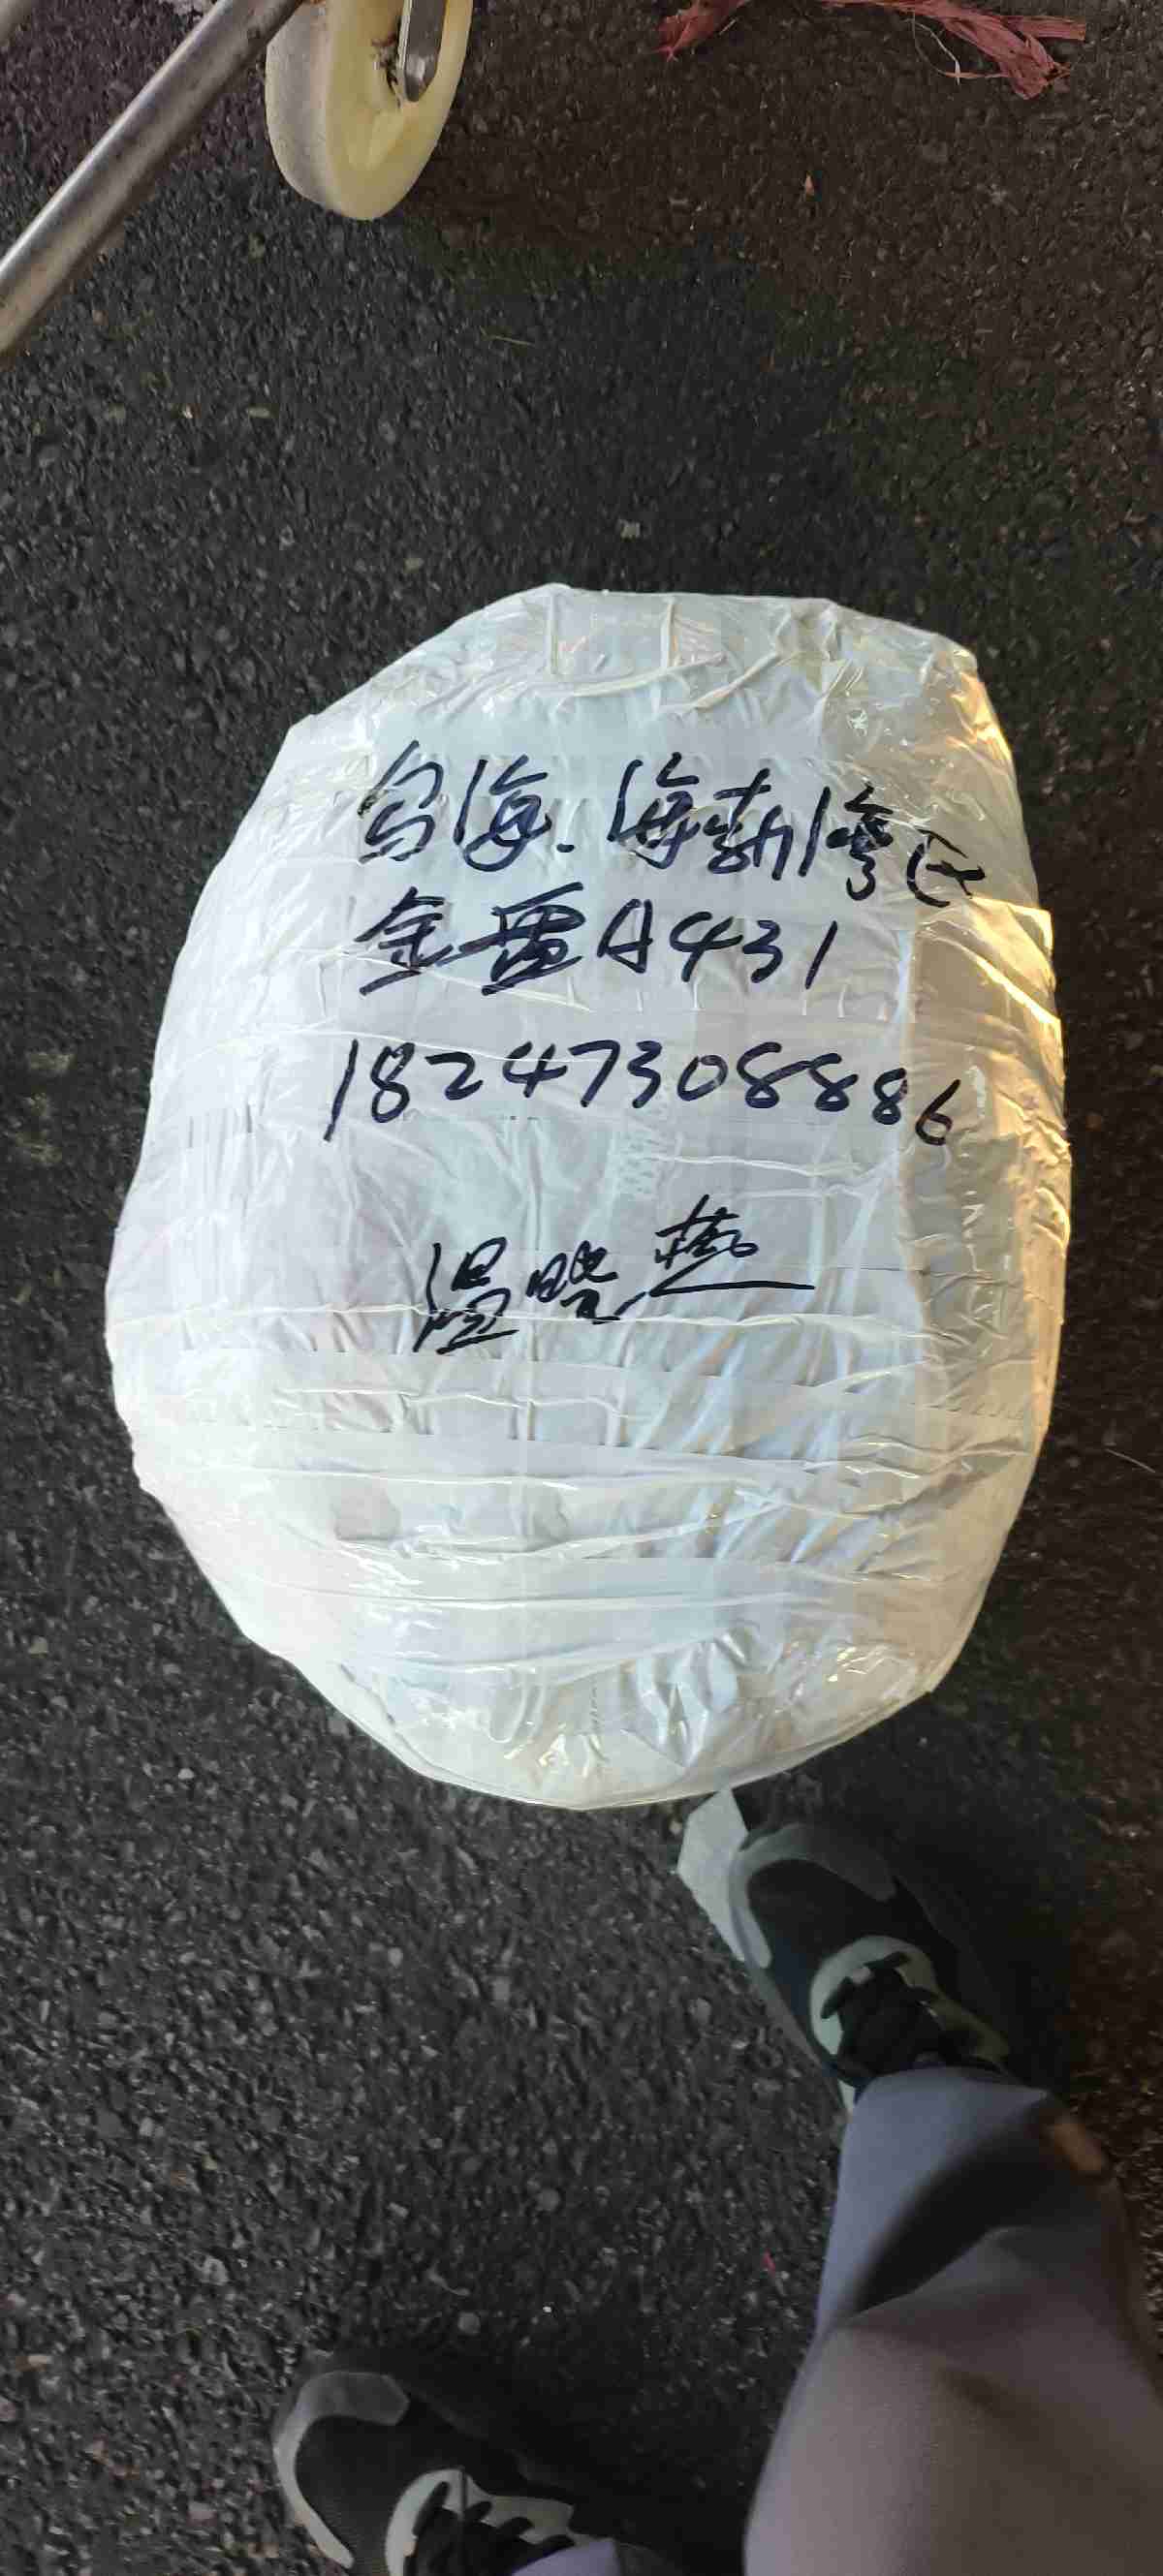 乌海.海勃湾区
金雷A431
18247308886
温晓燕